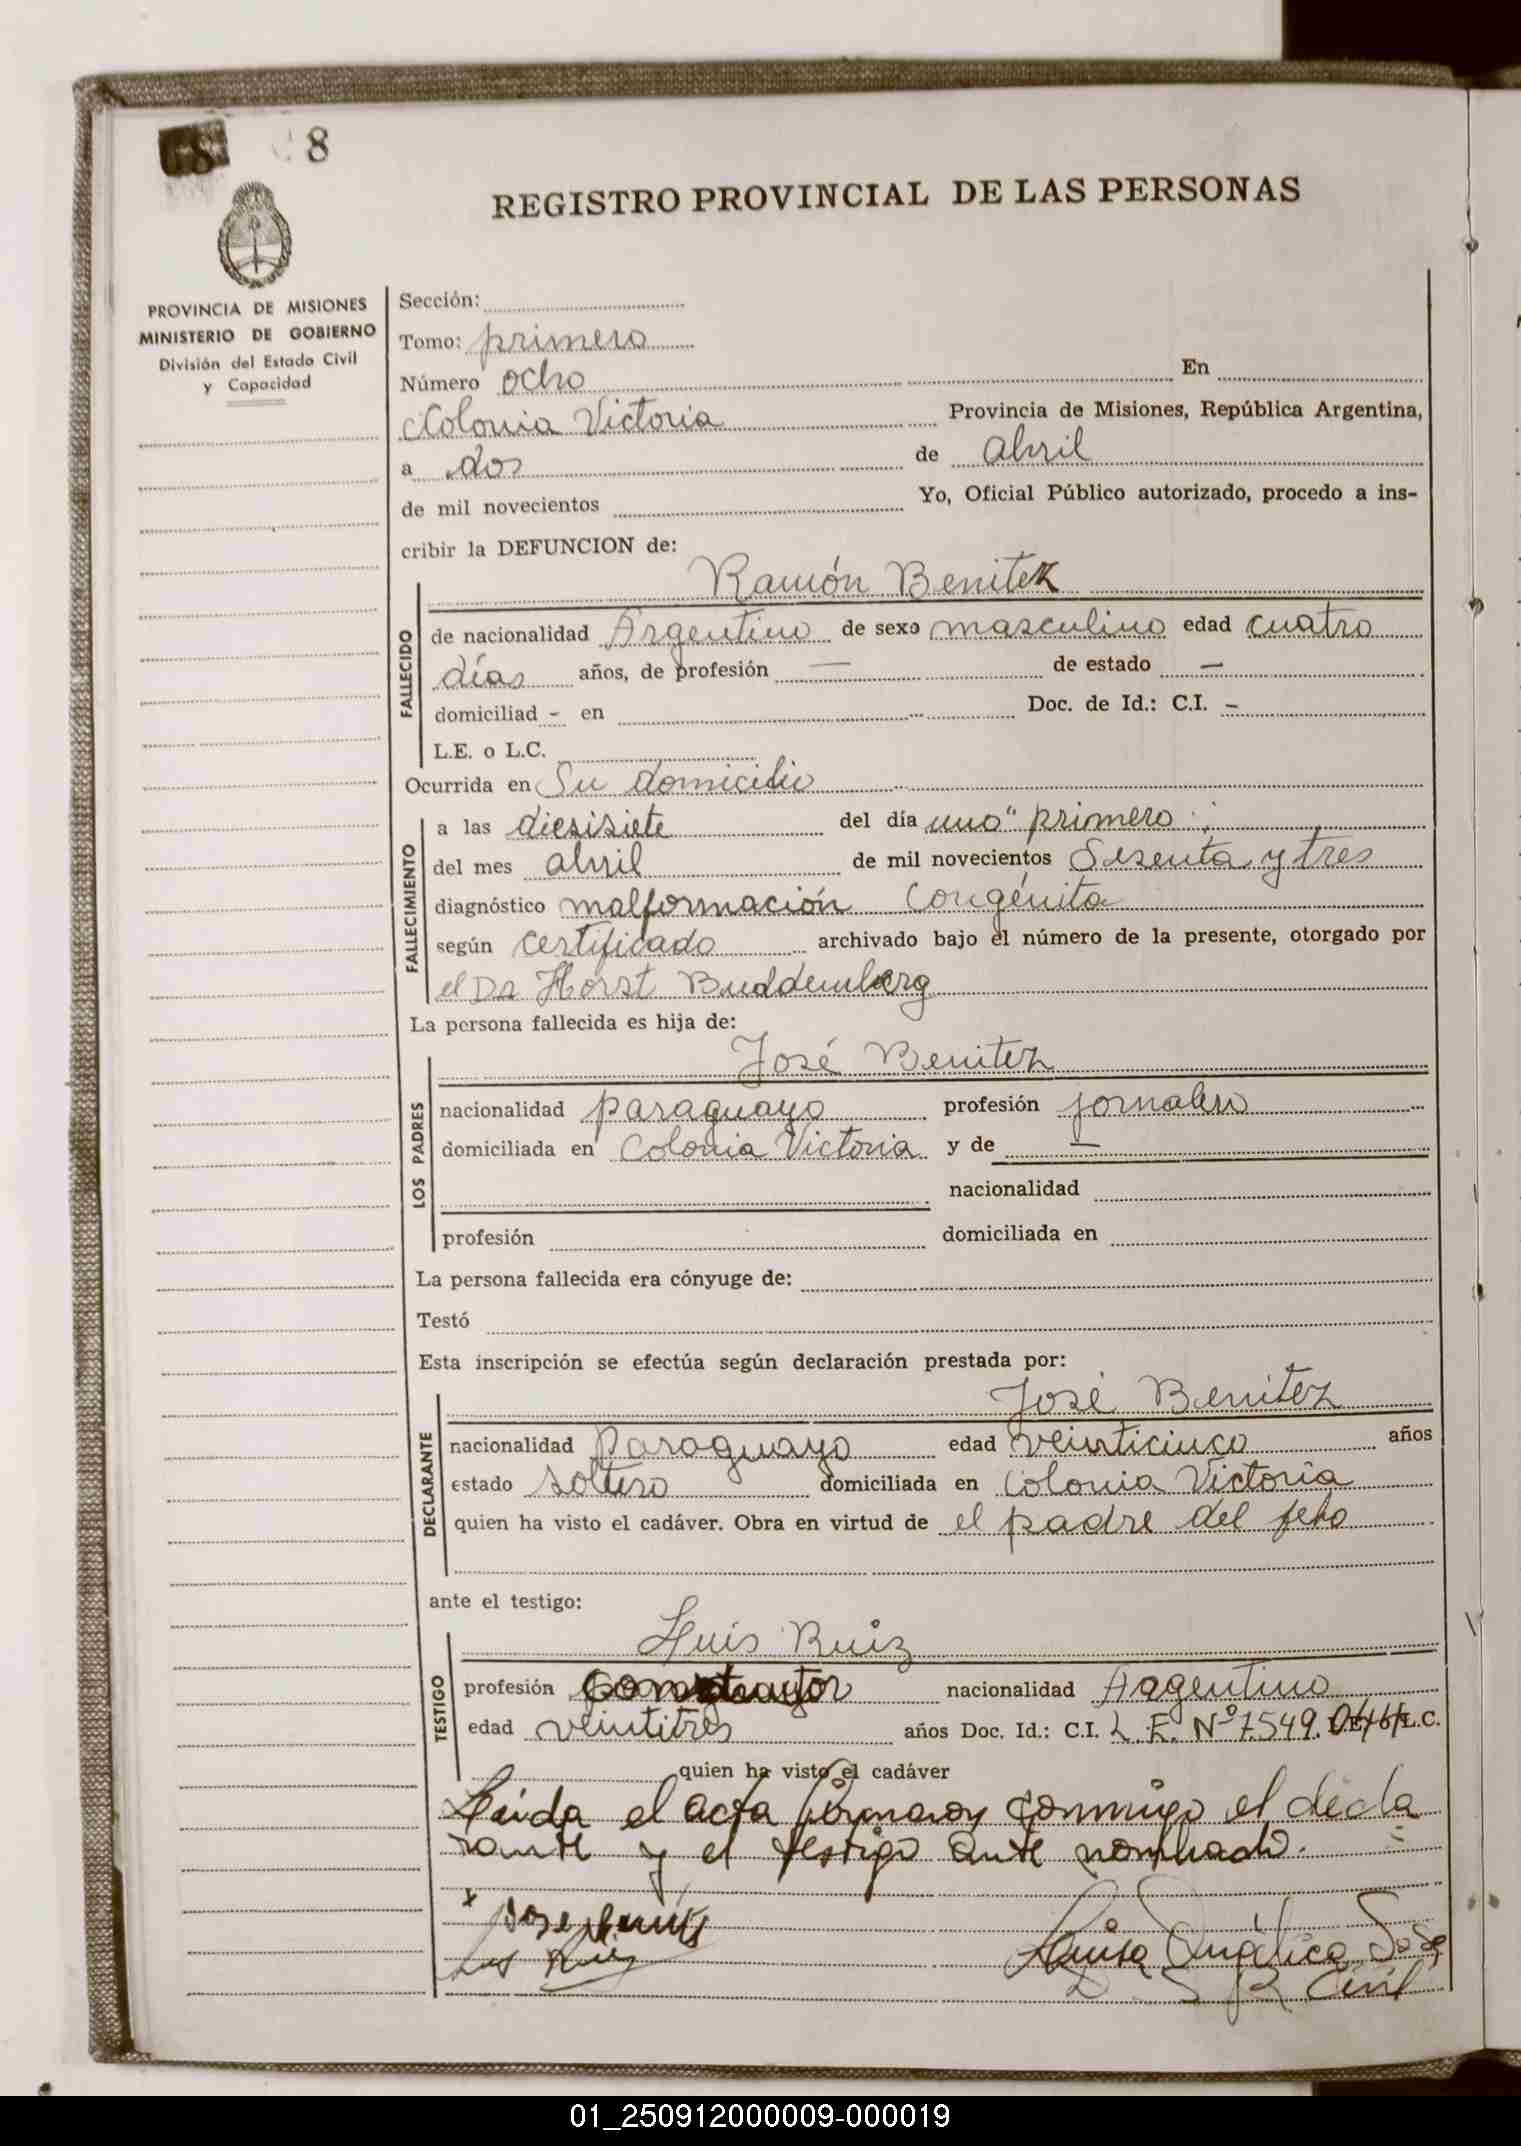 8
REGISTRO PROVINCIAL DE LAS PERSONAS
PROVINCIA DE MISIONES
MINISTERIO DE GOBIERNO
División del Estado Civil
y Capacidad
Sección:
Tomo: primero
Número ocho En
Colonia Victoria Provincia de Misiones, República Argentina,
a dos de abril
de mil novecientos Yo, Oficial Público autorizado, procedo a ins-
cribir la DEFUNCION de:
Ramón Benitez
FALLECIDO
de nacionalidad Argentino de sexo masculino edad cuatro
días años, de profesión — de estado —
domiciliad - en Doc. de Id.: C.I. -
L.E. o L.C.
Ocurrida en Su domicilio
FALLECIMIENTO
a las diesisiete del día uno" primero
del mes abril de mil novecientos Sesenta y tres
diagnóstico malformación Congénita
según certificado archivado bajo el número de la presente, otorgado por
el Dr Horst Buddemberg
La persona fallecida es hija de:
José Benitez
LOS PADRES
nacionalidad paraguayo profesión jornalero
domiciliada en Colonia Victoria y de —
nacionalidad
profesión domiciliada en
La persona fallecida era cónyuge de:
Testó
Esta inscripción se efectúa según declaración prestada por:
José Benitez
DECLARANTE
nacionalidad Paraguayo edad veinticinco años
estado soltero domiciliada en Colonia Victoria
quien ha visto el cadáver. Obra en virtud de el padre del feto
ante el testigo:
Luis Ruiz
TESTIGO
profesión nacionalidad Argentino
edad veintitres años Doc. Id.: C.I. L. E. Nº 7.549. L.C.
quien ha visto el cadáver
Leida el acta firmaron conmigo el decla
rante y el testigo ante nombrado.
x Jose Benites
Luis Ruiz
Luisa Angélica
R Civil
01_250912000009-000019